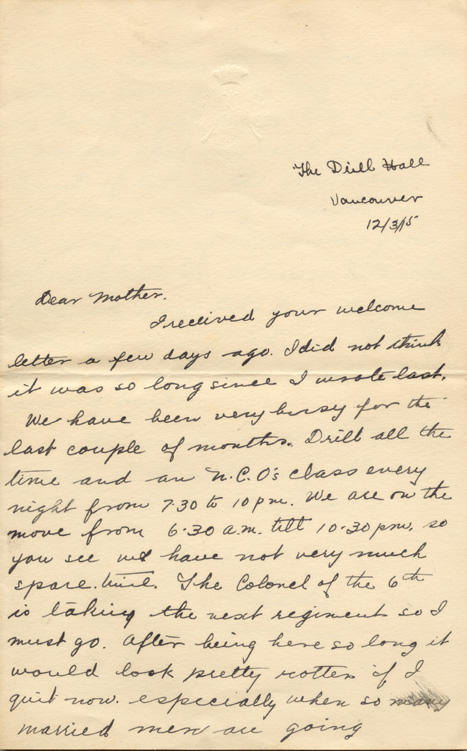 The Drill Hall
Vancouver
12/3/15
Dear Mother.
I received your welcome
letter a few days ago. I did not think
it was so long since I wrote last.
We have been very busy for the
last couple of months. Drill all the
time and an N.C.O's class every
night from 7.30 to 10 pm. We are on the
move from 6.30 a.m. till 10.30 pm, so
you see we have not very much
spare time. The Colonel of the 6th
is taking the next regiment so I
must go. After being here so long it
would look pretty rotten if I
quit now. especially when so many
married men are going